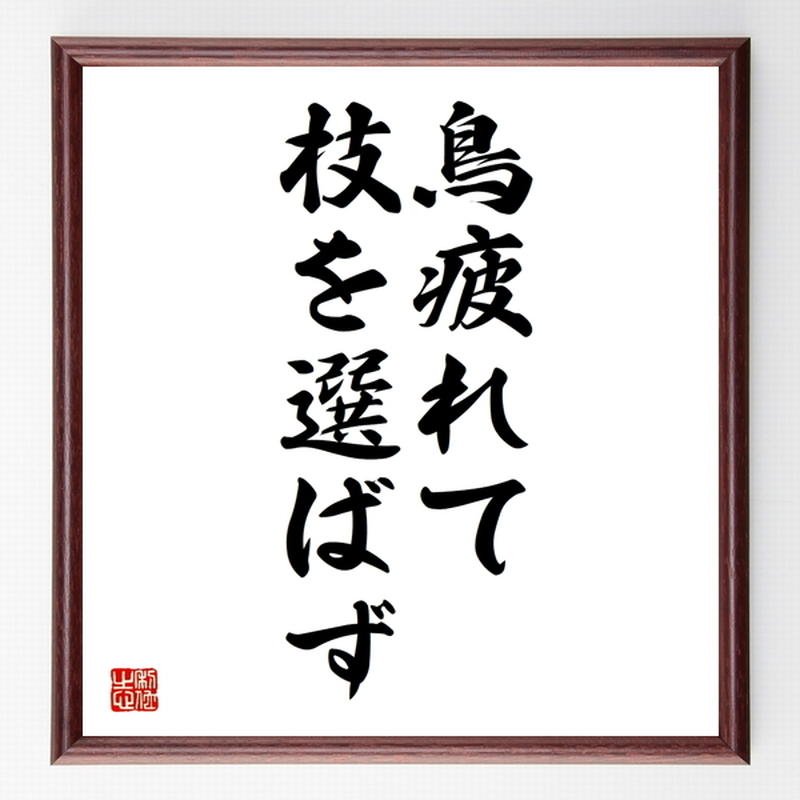 鳥疲れて
枝を選ばず